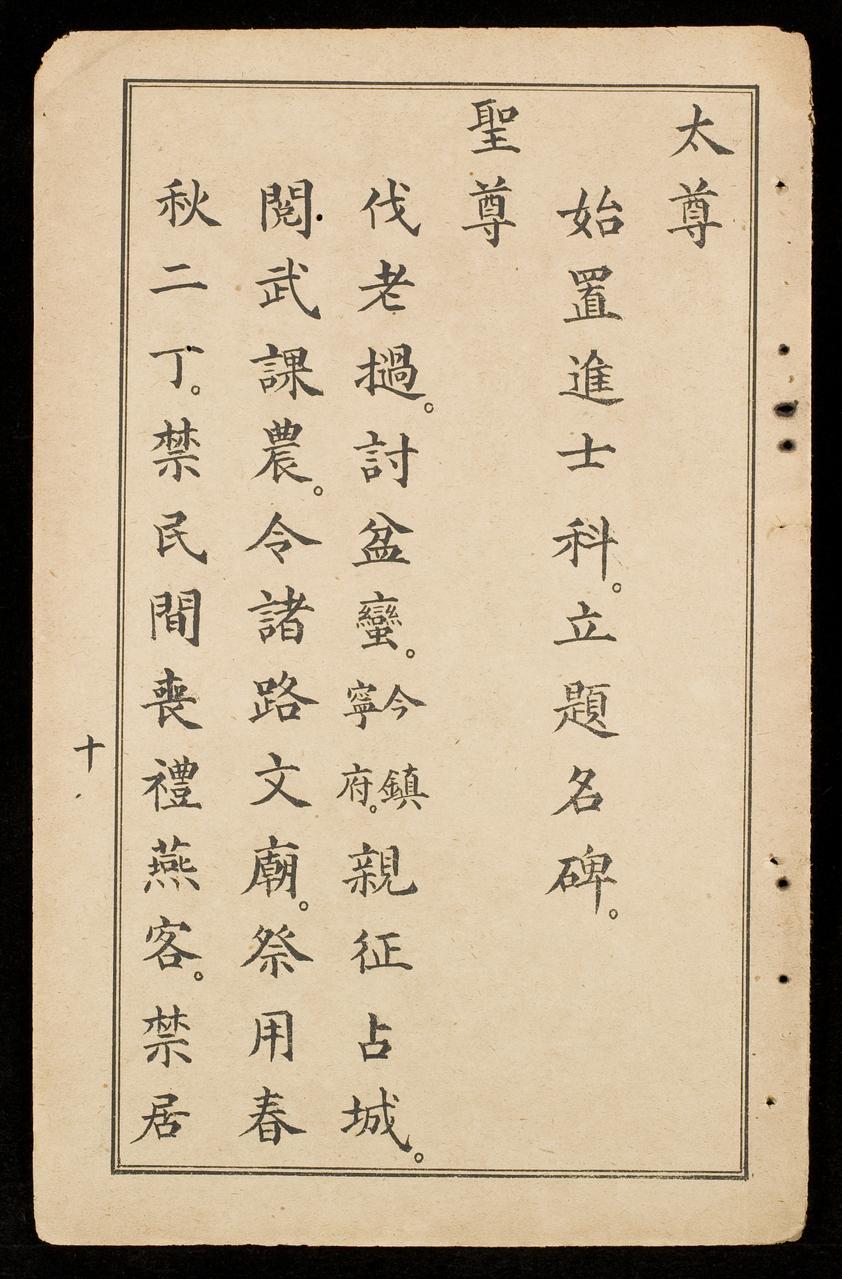 太尊
始置進士科。立題名碑。
聖尊
伐老撾。討盆蠻。今鎮寧府。親征占城。
閱武課農。令諸路文廟。祭用春
秋二丁。禁民間喪禮燕客。禁居
十